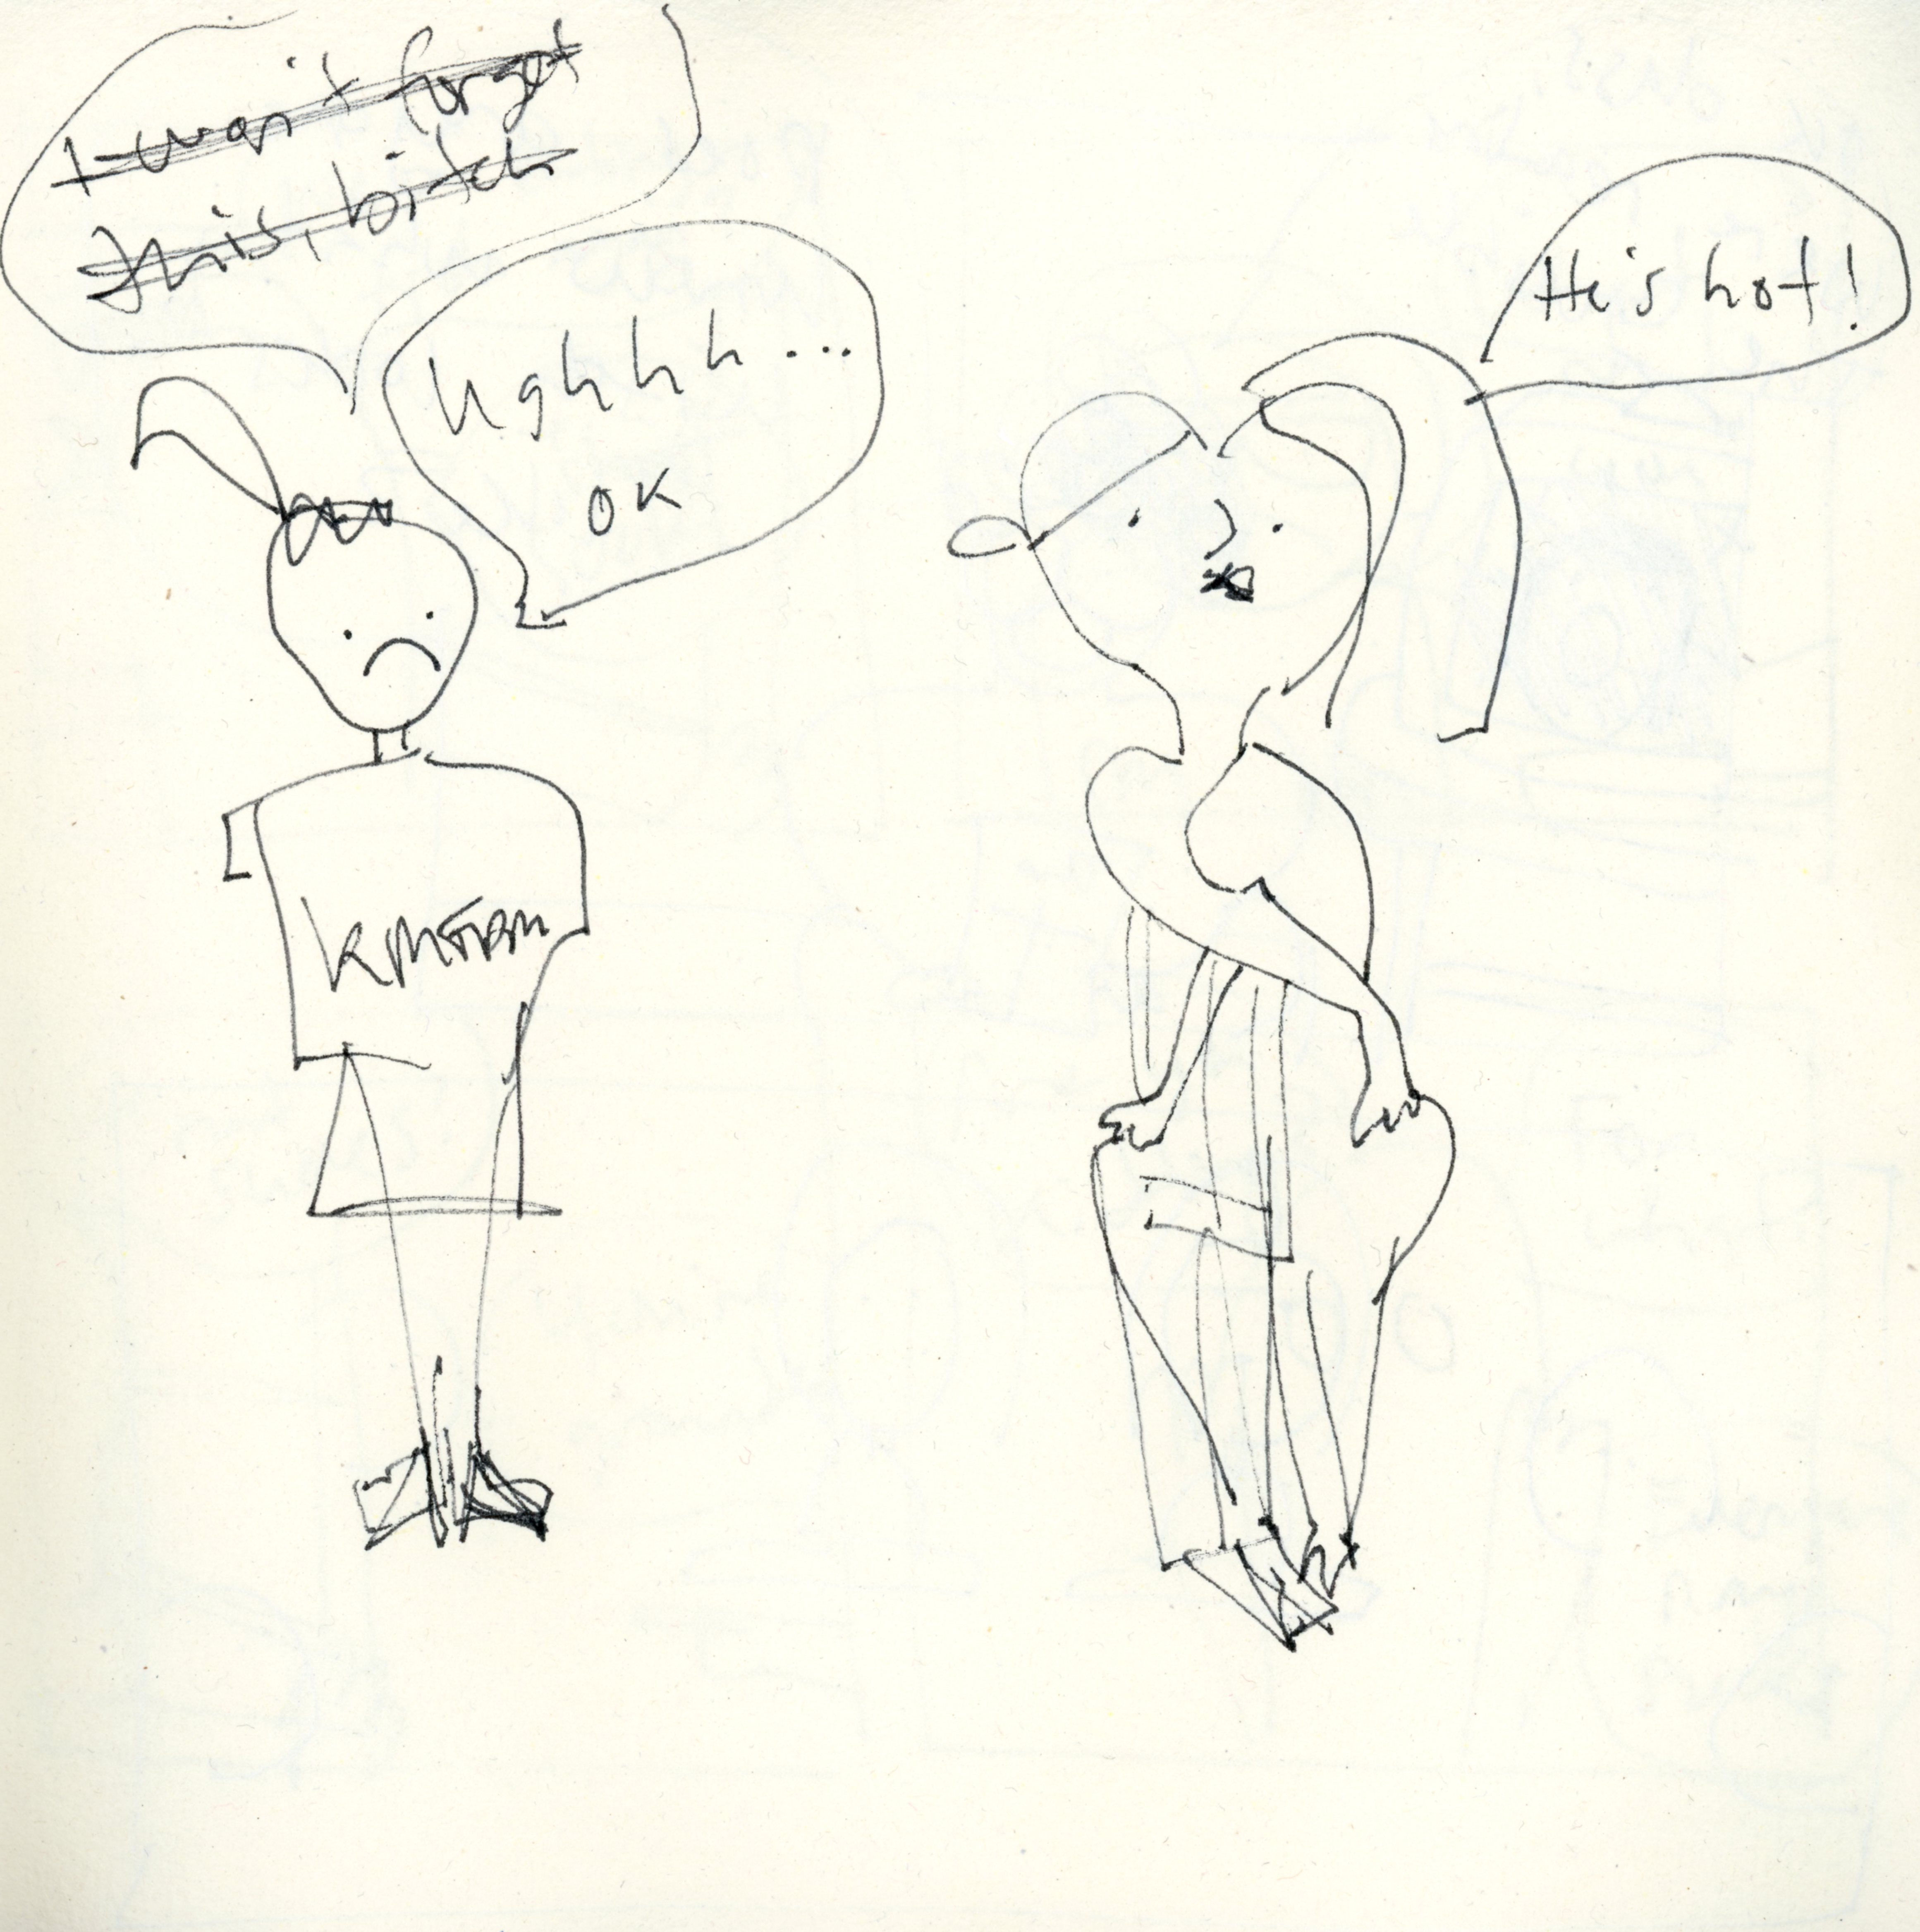 I won't forget
this, bitch
Ughhh...
OK
He's hot!